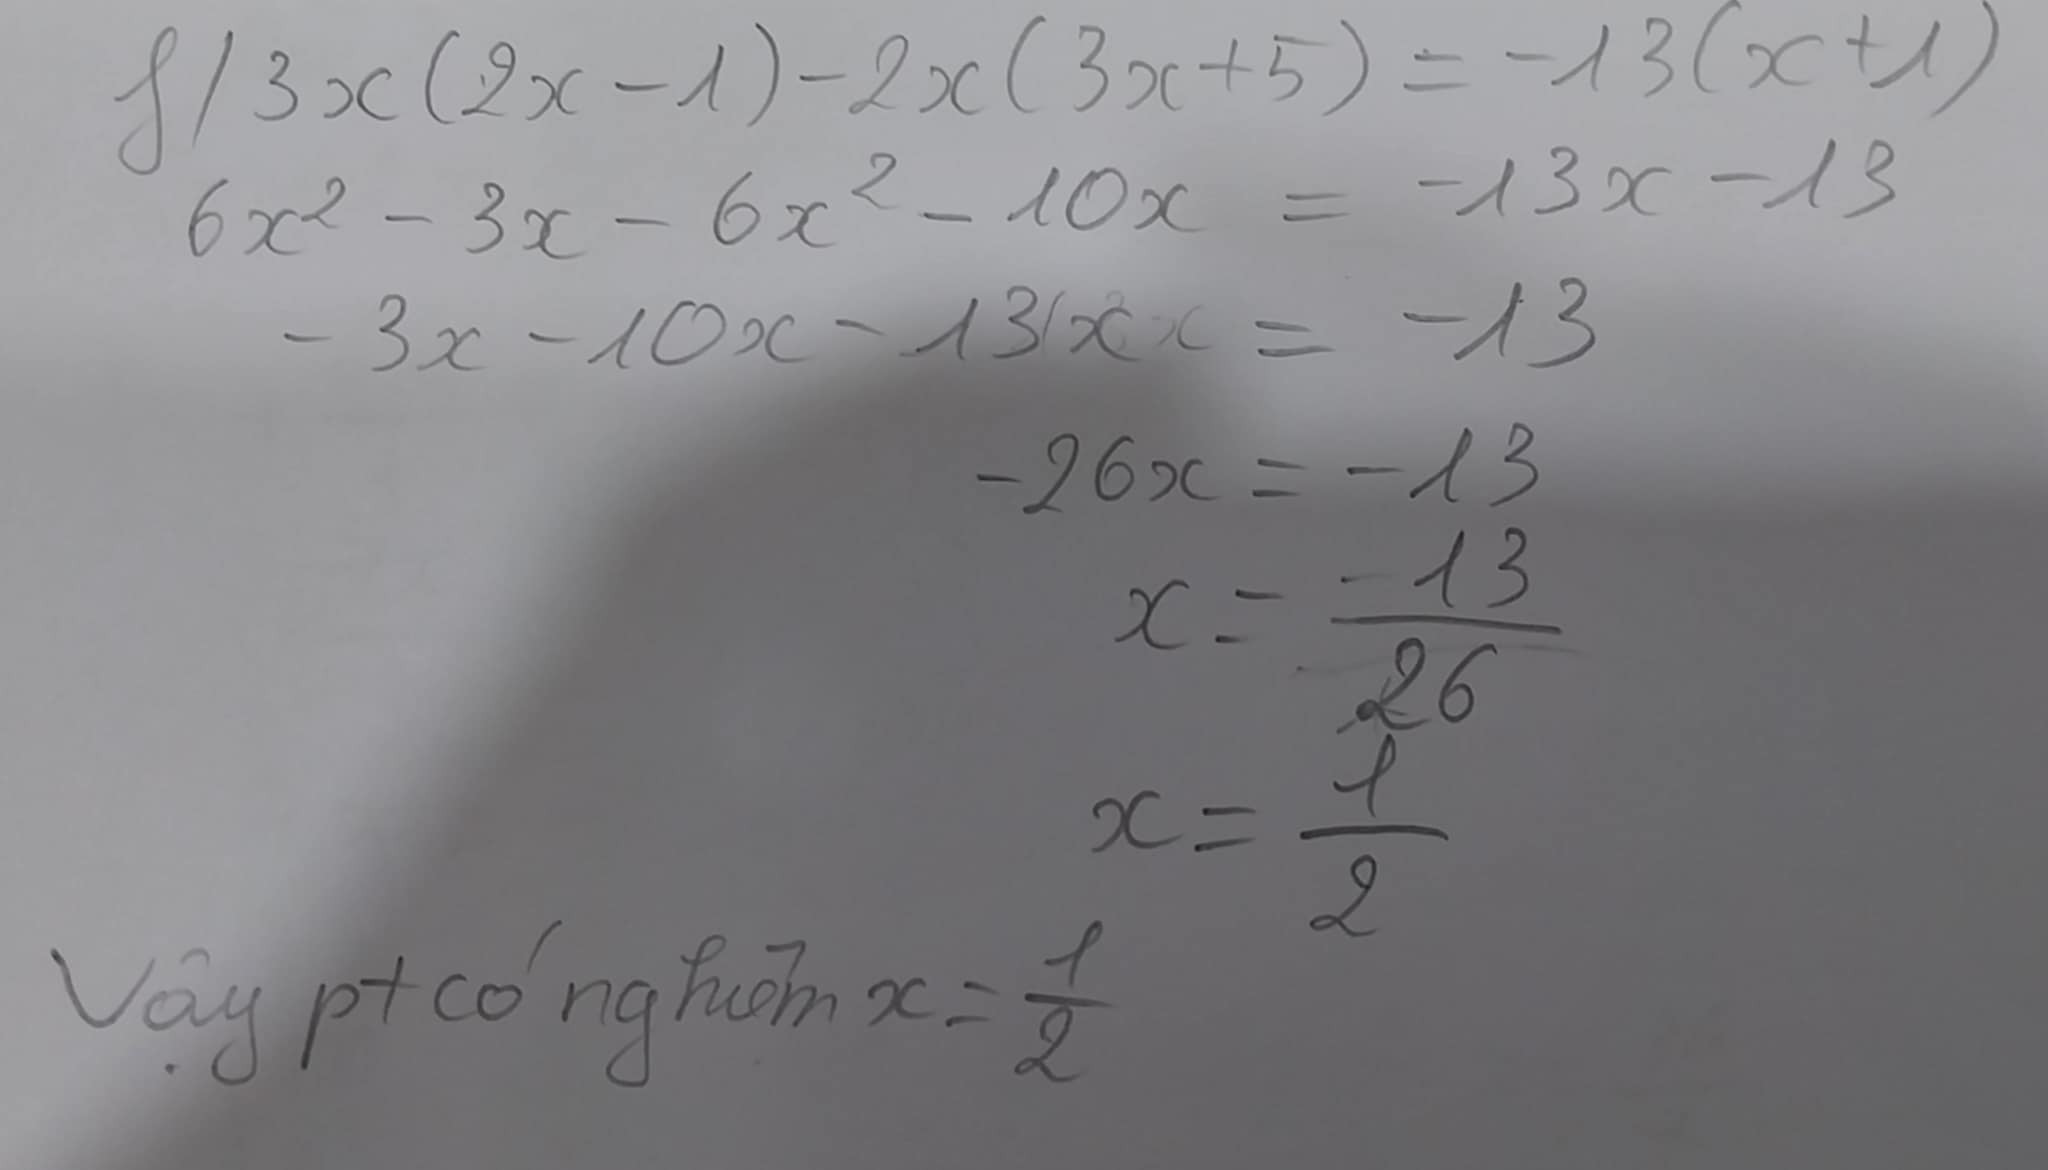 f/ 3x(2x-1)-2x(3x+5) = -13(x+1)
6x² - 3x - 6x² - 10x = -13x - 13
-3x - 10x - 13x = -13
-26x = -13
x = -13/26
x = 1/2
Vậy pt có nghiệm x = 1/2